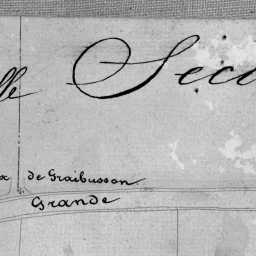 lle Seco
x de Graibusson
Grande